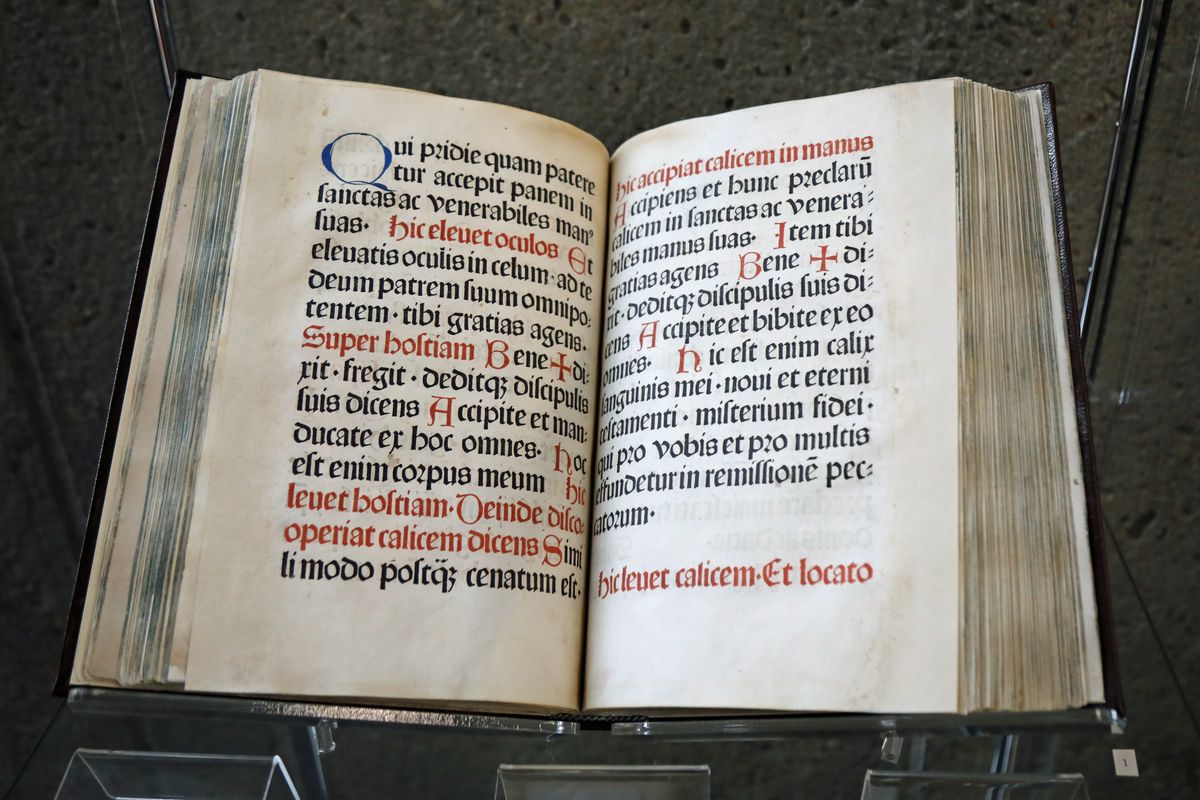 Qui pridie quam patere
tur accepit panem in
sanctas ac venerabiles man⁹
suas· hic elevet oculos Et
elevatis oculis in celum· ad te
deum patrem suum omnipo:
tentem· tibi gratias agens.
Super hostiam Bene ✝ di:
xit· fregit· deditqꝫ discipulis
suis dicens Accipite et man:
ducate ex hoc omnes· hoc
est enim corpus meum hic
levet hostiam· Deinde disco:
operiat calicem dicens Simi
li modo postqꝫ cenatum est·
hic accipiat calicem in manus
Accipiens et hunc preclarū
calicem in sanctas ac venera:
biles manus suas· Item tibi
gratias agens Bene ✝ di:
xit· deditqꝫ discipulis suis di:
cens Accipite et bibite ex eo
omnes· hic est enim calix
sanguinis mei· noui et eterni
testamenti· misterium fidei·
qui pro vobis et pro multis
effundetur in remissionē pec:
catorum·
hic levet calicem· Et locato
1